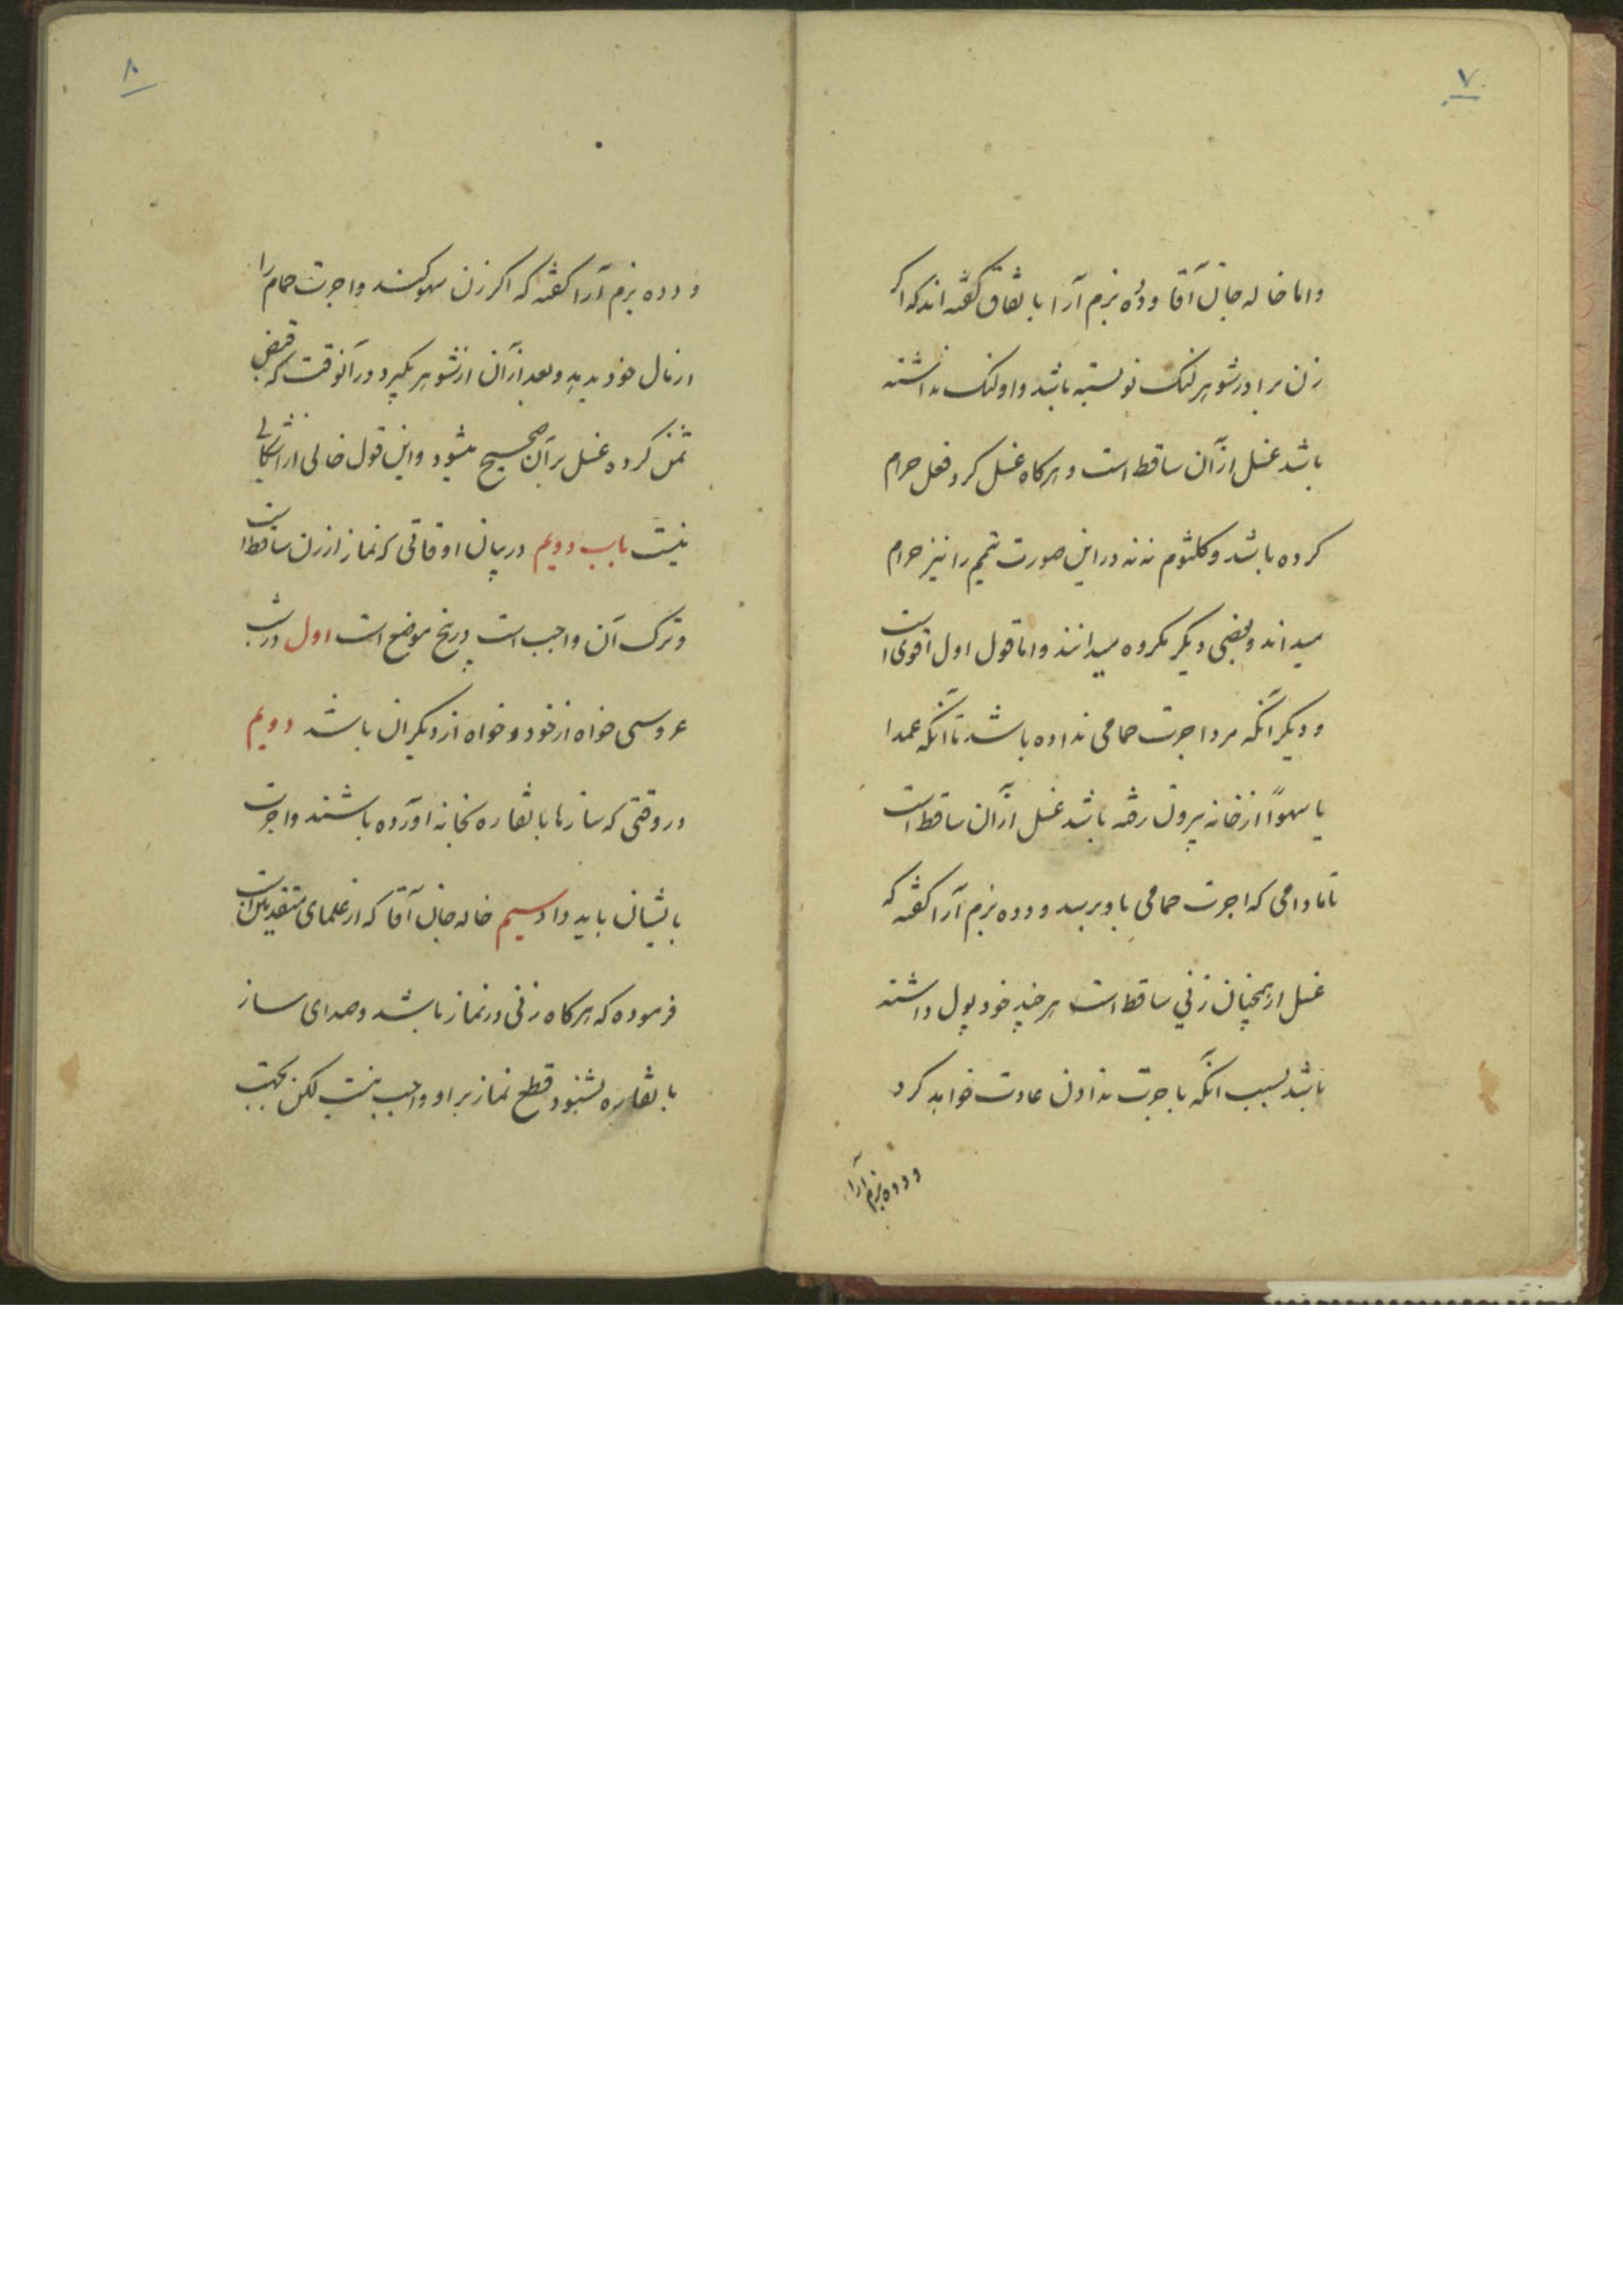 ۷
واما خاله جان آقا و دده بزم آرا باتفاق گفته اند که اگر
زن برادر شوهر لنگ نو بسته باشد و او لنگ نداشته
باشد غسل از آن ساقط است و هرکاه غسل کرد فعل حرام
کرده باشد و کلثوم ننه در این صورت تیمم را نیز حرام
میداند و بعضی دیگر مکروه میدانند واما قول اول اقوی است
و دیگر آنکه مرد اجرت حمامی نداده باشد تا آنکه عمدا
یا سهواً از خانه بیرون رفته باشد غسل از آن ساقط است
تا مادامی که اجرت حمامی باو برسد و دده بزم آرا گفته که
غسل از همچنان زنی ساقط است هر چند خود پول داشته
باشد بسبب آنکه باجرت ندادن عادت خواهد کرد
و دده بزم آرا
۸
و دده بزم آرا گفته که اکر زن سهو کند و اجرت حمام را
از مال خود بدهد و بعد از آن از شوهر بگیرد در آنوقت که قبض
ثمن کرده غسل بر آن صحیح میشود و این قول خالی از اشکالی
نیست باب دویم در بیان اوقاتی که نماز از زن ساقط است
و ترک آن واجب است در پنج موضع است اول در شب
عروسی خواه از خود و خواه از دیکران باشد دویم
در وقتی که سازها با نقاره بخانه آورده باشند و اجرت
بایشان باید داد سیم خاله جان آقا که از علمای متقدمین است
فرموده که هرکاه زنی در نماز باشد و صدای ساز
با نقاره بشنود قطع نماز بر او واجب نیست لکن بجهت